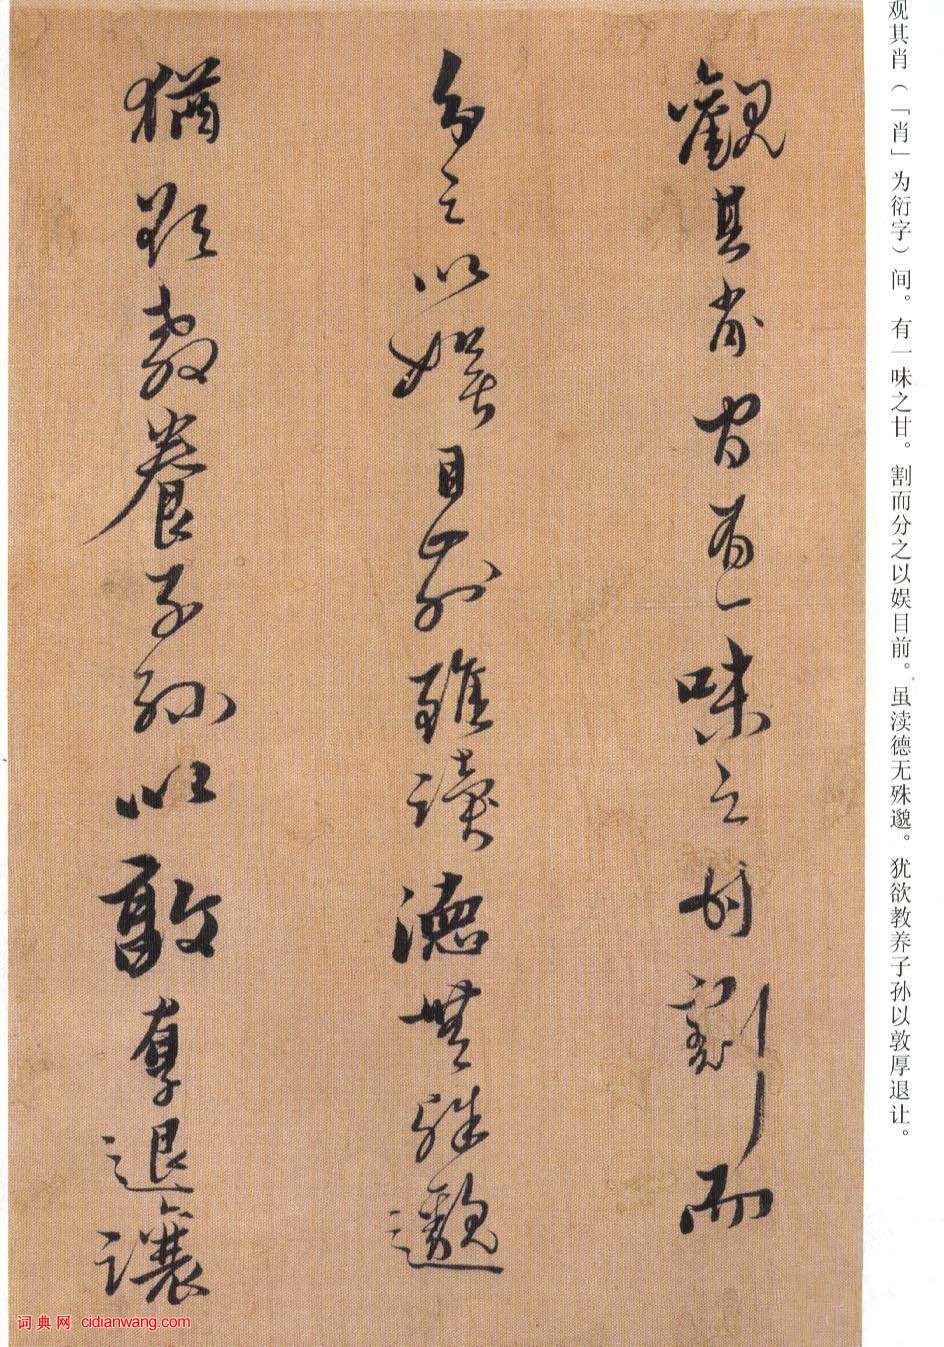 观其肖（「肖」为衍字）间。有一味之甘。割而分之以娱目前。虽渎德无殊邈。犹欲教养子孙以敦厚退让。
觀其肖间有一味之甘割而
分之以娛目前雖讀德無殊邈
猶欲教養子孫以敦厚退讓
词典网 cidianwang.com